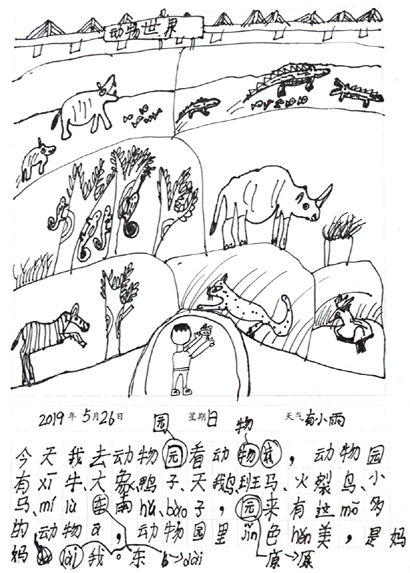 动物世界
2019年5月26日 星期日 天气 有小雨
园 物
今天我去动物园看动物我，动物园
有xī牛、大象、鸭子、天鹅、斑马、火裂鸟、小
马、mí lù、东南hǔ、bào子，园来有这mō多
的动物ā，动物园里jǐn色hěn美，是妈
妈 dài我。东 b→dài 原→原